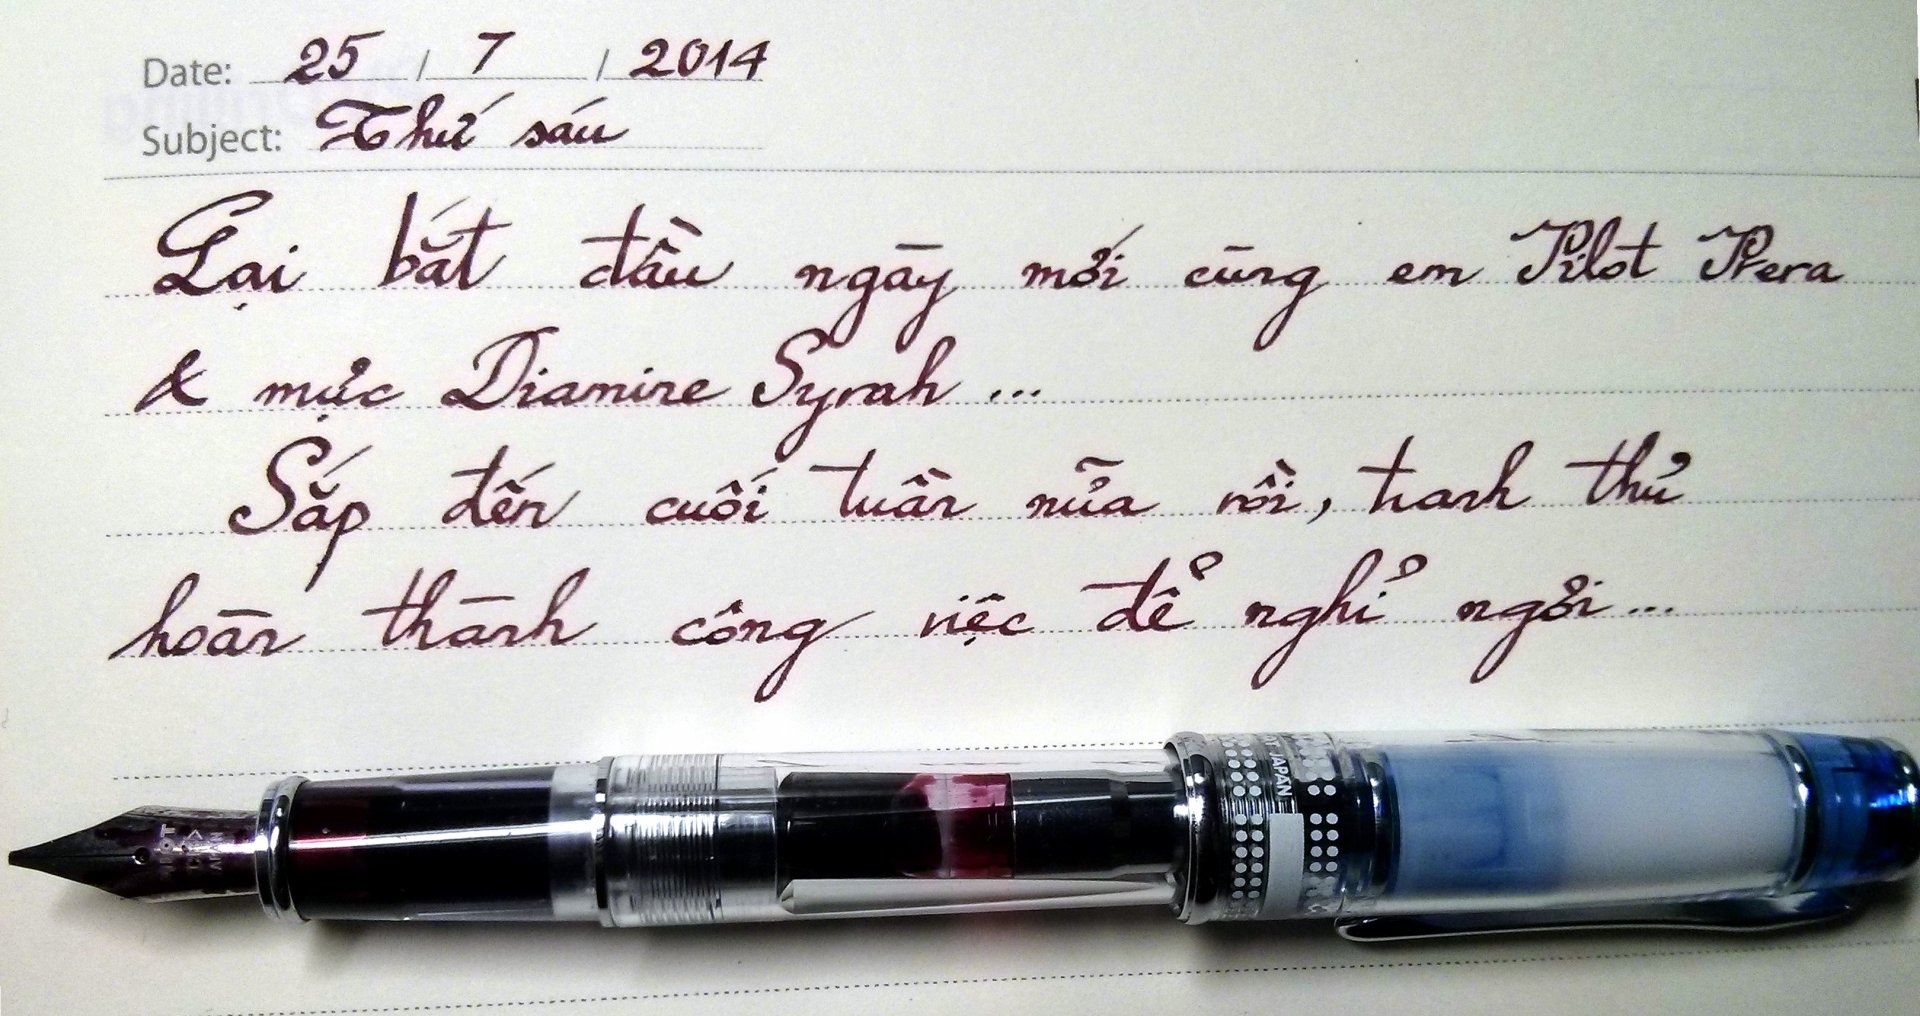 Date: 25 / 7 / 2014
Subject: Thứ sáu
Lại bắt đầu ngày mới cùng em Pilot Prera
& mực Diamine Syrah ...
Sắp đến cuối tuần nữa rồi, tranh thủ
hoàn thành công việc để nghỉ ngơi ...
JAPAN